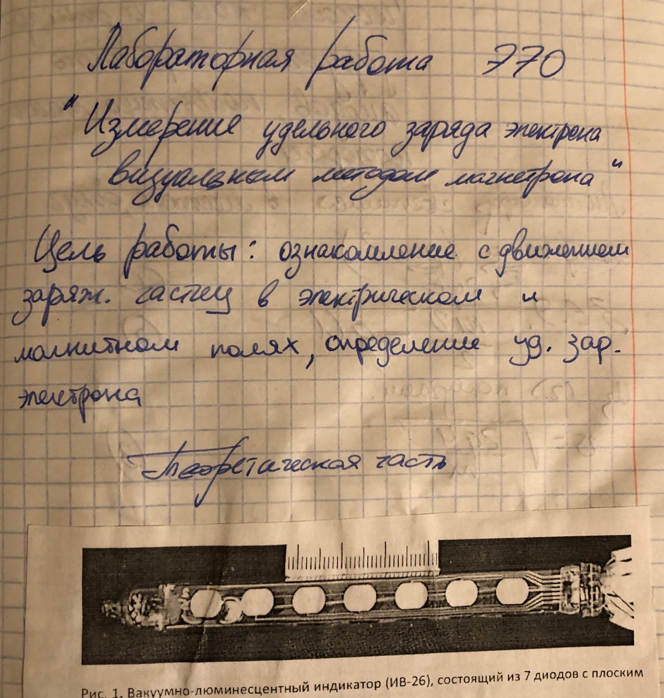 Лабораторная работа Э70
"Измерение удельного заряда электрона
визуальным методом магнетрона"
Цель работы: ознакомление с движением
заряж. частиц в электрическом и
магнитном полях, определение уд. зар.
электрона
Теоретическая часть
Рис. 1. Вакуумно-люминесцентный индикатор (ИВ-26), состоящий из 7 диодов с плоским